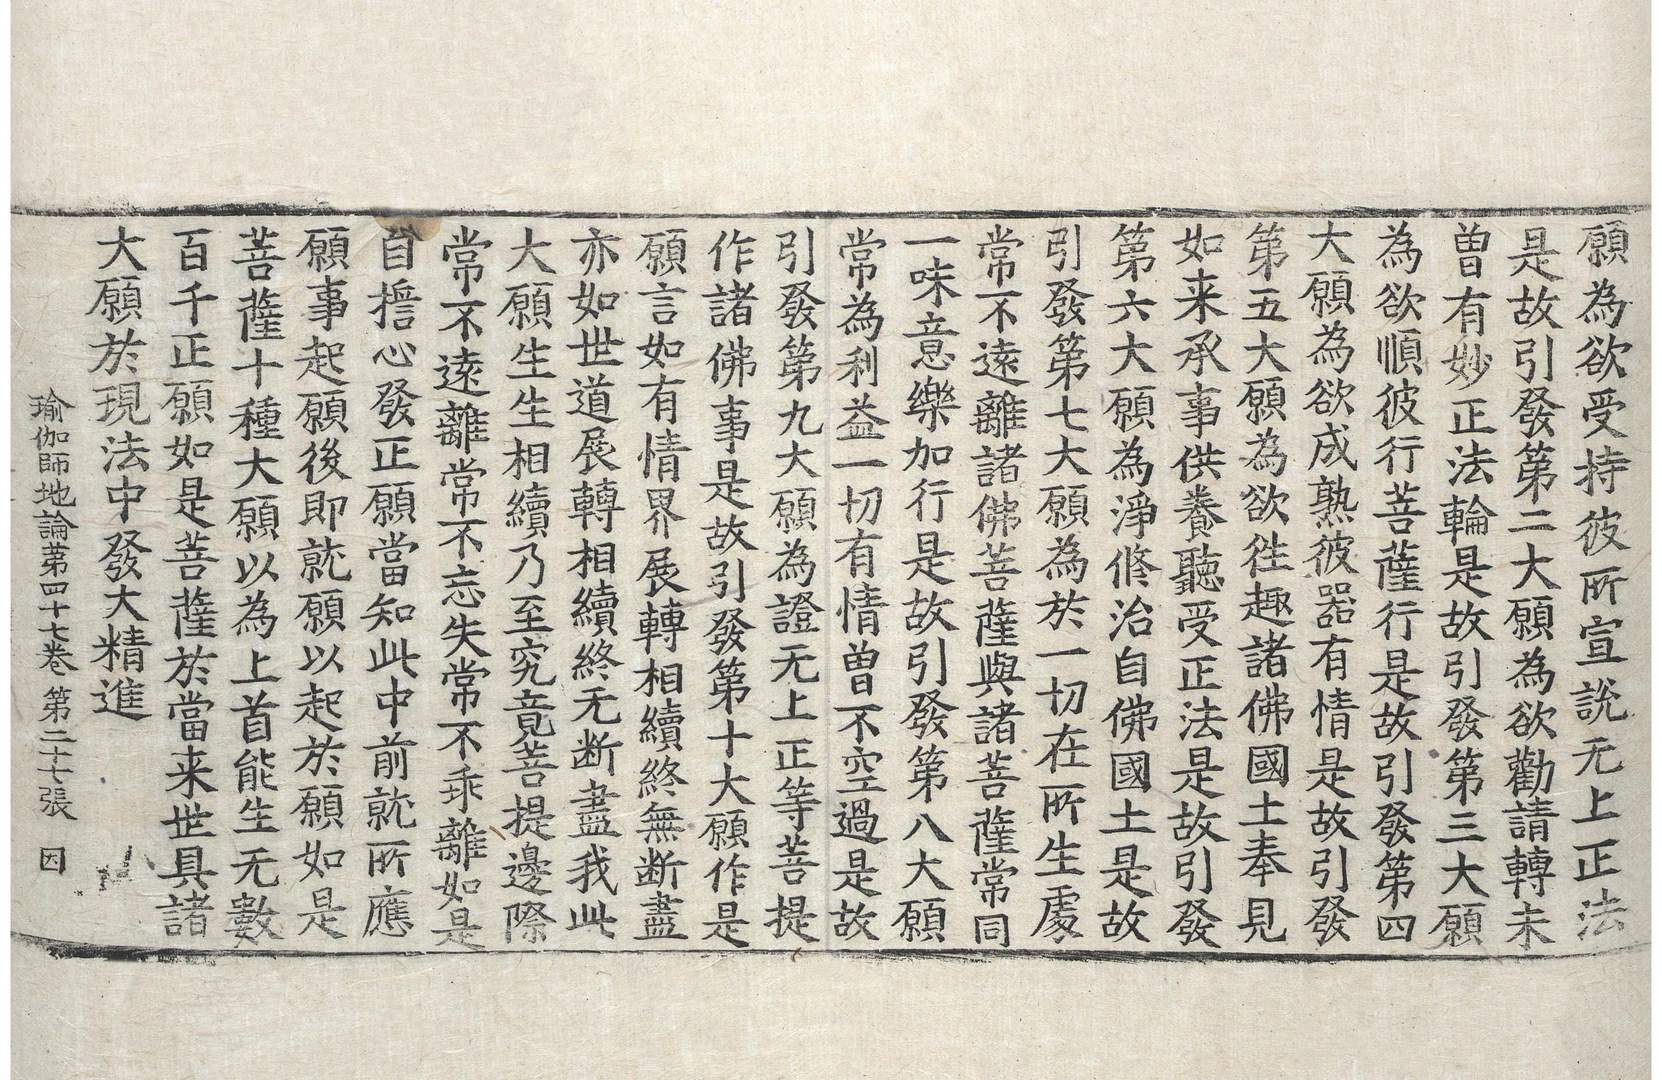 願為欲受持彼所宣說无上正法
是故引發第二大願為欲勸請轉未
曽有妙正法輪是故引發第三大願
為欲順彼行菩薩行是故引發第四
大願為欲成熟彼器有情是故引發
第五大願為欲徃趣諸佛國土奉見
如来承事供養聽受正法是故引發
第六大願為淨修治自佛國土是故
引發第七大願為於一切在所生處
常不遠離諸佛菩薩與諸菩薩常同
一味意樂加行是故引發第八大願
常為利益一切有情曽不空過是故
引發第九大願為證无上正等菩提
作諸佛事是故引發第十大願作是
願言如有情界展轉相續終無断盡
亦如世道展轉相續終无断盡我此
大願生生相續乃至究竟菩提邊際
常不遠離常不忘失常不乖離如是
自揩心發正願當知此中前就所應
願事起願後即就願以起於願如是
菩薩十種大願以為上首能生无數
百千正願如是菩薩於當来世具諸
大願於現法中發大精進
瑜伽師地論第四十七卷 第二十七張 因